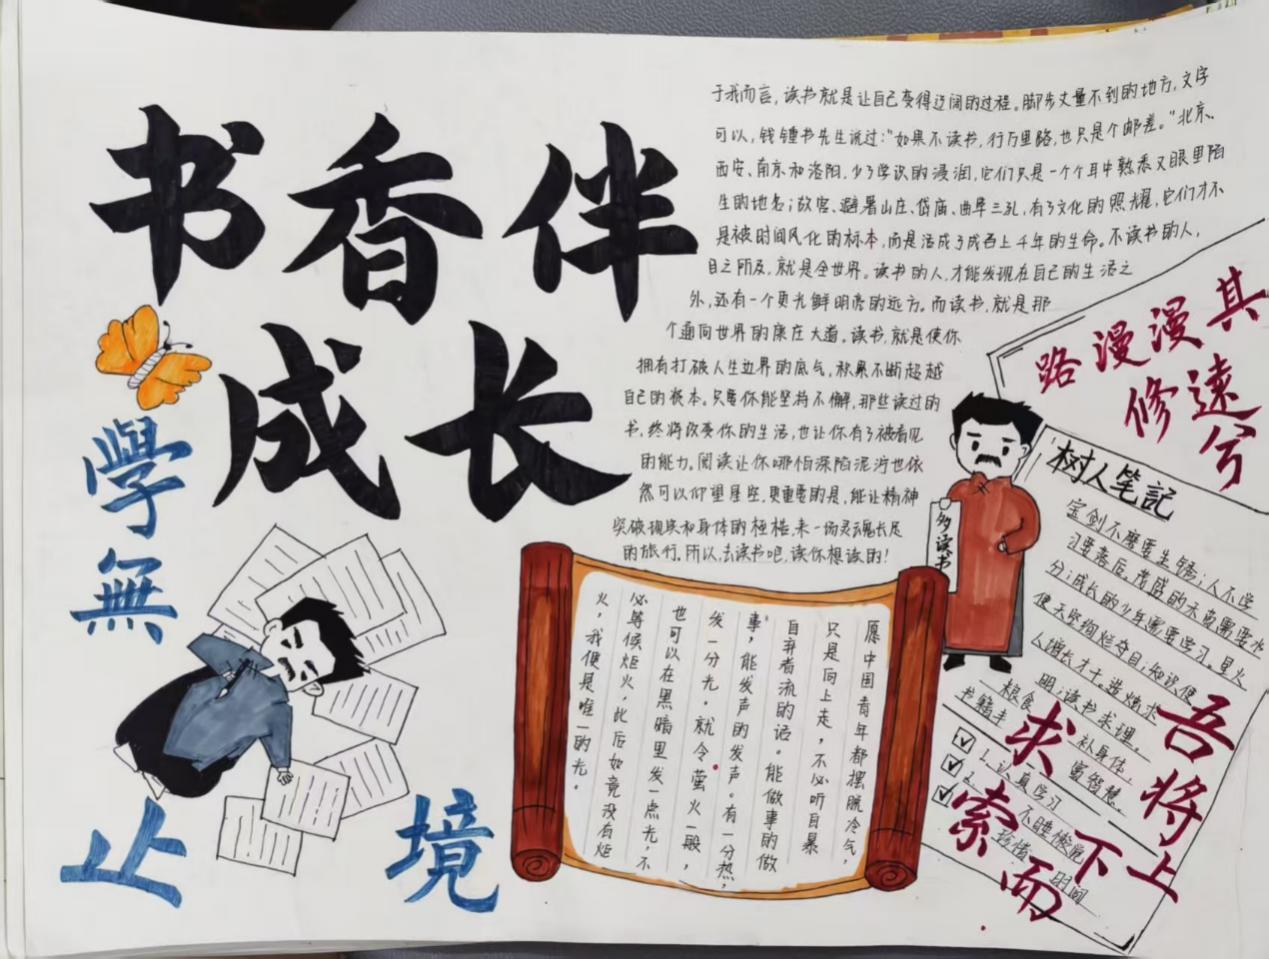 书香伴
成长
學
無
止
境
于我而言，读书就是让自己变得辽阔的过程。脚步丈量不到的地方，文字
可以，钱锺书先生说过："如果不读书，行万里路，也只是个邮差。"北京、
西安、南京和洛阳，少了学识的浸润，它们只是一个个耳中熟悉又眼里陌
生的地名；故宫、避暑山庄、岱庙、曲阜三孔，有了文化的照耀，它们才不
是被时间风化的标本，而是活成了成百上千年的生命。不读书的人，
目之所及，就是全世界。读书的人，才能发现在自己的生活之
外，还有一个更光鲜明亮的远方。而读书，就是那
个通向世界的康庄大道。读书，就是使你
拥有打破人生边界的底气，积累不断超越
自己的资本。只要你能坚持不懈，那些读过的
书，终将改变你的生活，也让你有了被看见
的能力。阅读让你哪怕深陷泥泞也依
然可以仰望星空，更重要的是，能让精神
突破现实和身体的桎梏，来一场灵魂长足
的旅行。所以，去读书吧，读你想读的！
愿中国青年都摆脱冷气，
只是向上走，不必听自暴
自弃者流的话。能做事的做
事，能发声的发声。有一分热，
发一分光，就令萤火一般，
也可以在黑暗里发一点光，不
必等候炬火，此后如竟没有炬
火，我便是唯一的光。
多读书
路漫漫其
修遠兮
吾将上
下而
求索
树人笔記
宝剑不磨要生锈；人不学
习要落后。茂盛的禾苗需要水
分；成长的少年需要学习。星火
使天空绚烂夺目；知识使
人增长才干。造烛求
明；读书求理。
粮食补身体；
书籍丰富智慧。
1.认真学习
2.不睡懒觉
珍惜时间